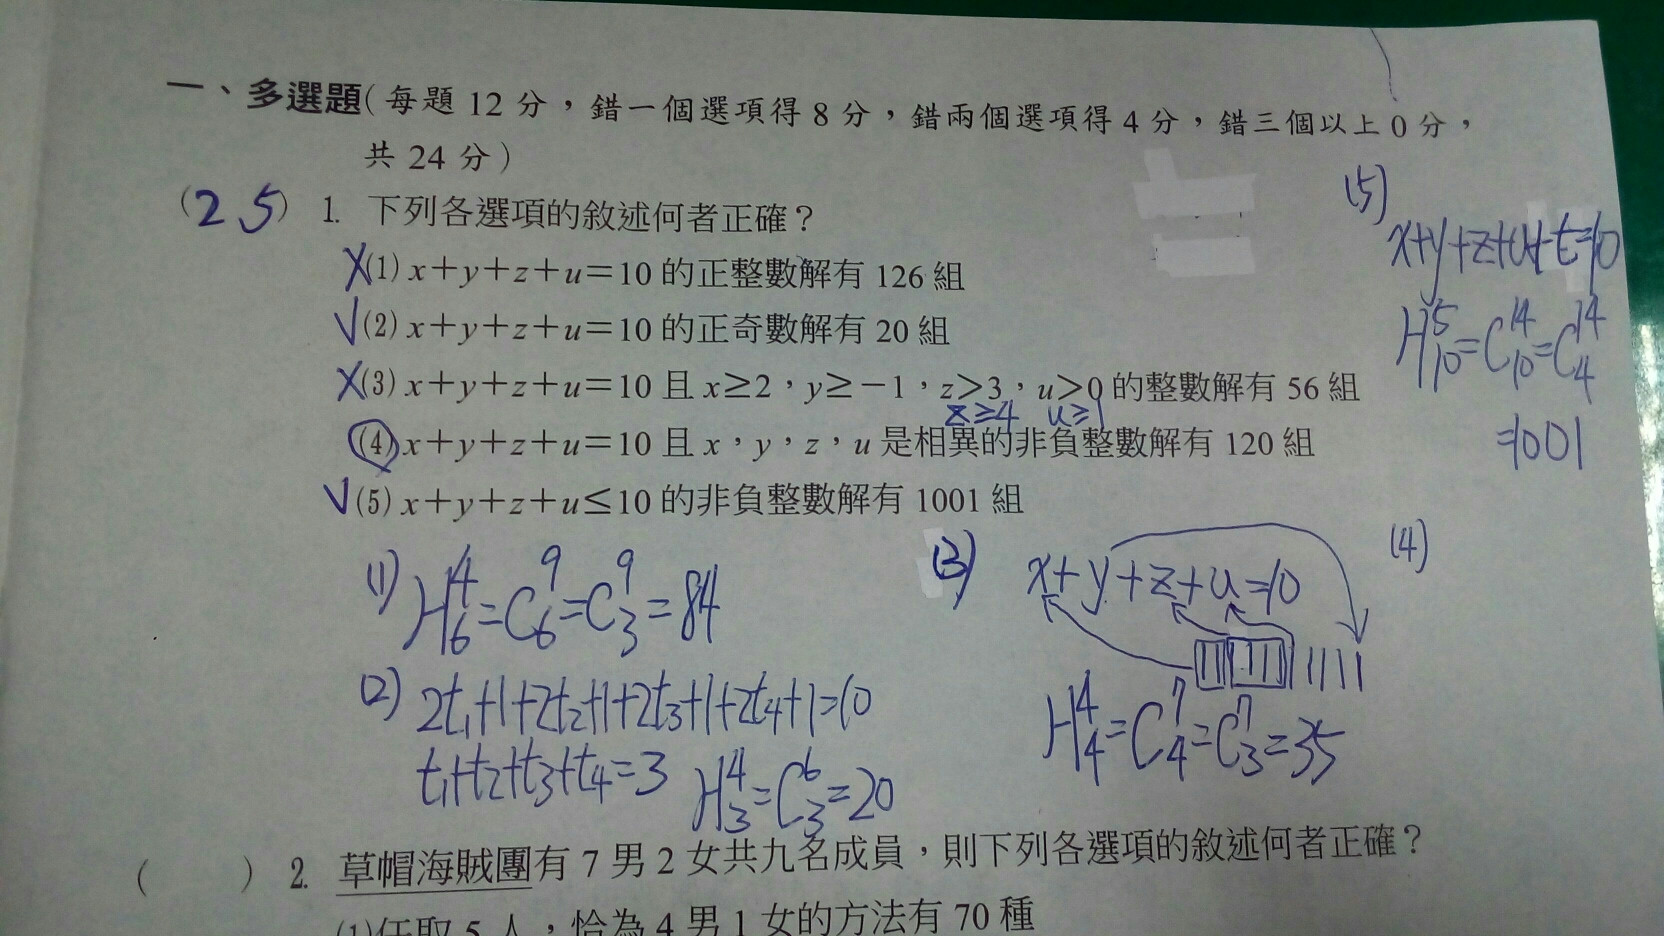 一、多選題(每題 12 分，錯一個選項得 8 分，錯兩個選項得 4 分，錯三個以上 0 分，
共 24 分)
(2 5) 1. 下列各選項的敘述何者正確？
X(1) x＋y＋z＋u＝10 的正整數解有 126 組
√(2) x＋y＋z＋u＝10 的正奇數解有 20 組
X(3) x＋y＋z＋u＝10 且 x≥2，y≥－1，z＞3，u＞0 的整數解有 56 組
z≥4 u≥1
(4) x＋y＋z＋u＝10 且 x，y，z，u 是相異的非負整數解有 120 組
√(5) x＋y＋z＋u≤10 的非負整數解有 1001 組
(5)
x+y+z+u+t=10
H⁵₁₀=C¹⁴₁₀=C¹⁴₄
=1001
(1) H⁴₆=C⁹₆=C⁹₃=84
(2) 2t₁+1+2t₂+1+2t₃+1+2t₄+1=10
t₁+t₂+t₃+t₄=3 H⁴₃=C⁶₃=20
(3) x+y+z+u=10
H⁴₄=C⁷₄=C⁷₃=35
(4)
( ) 2. 草帽海賊團有 7 男 2 女共九名成員，則下列各選項的敘述何者正確？
(1)任取 5 人，恰為 4 男 1 女的方法有 70 種